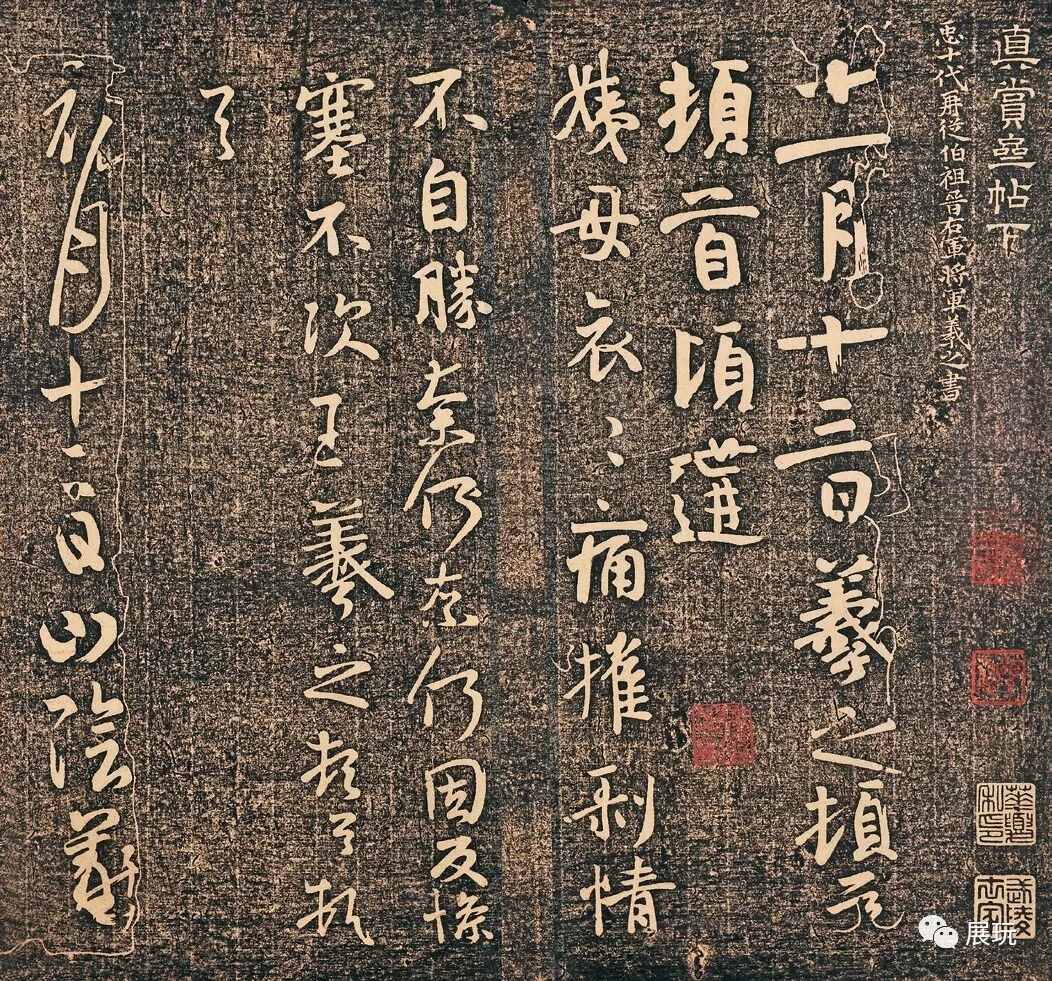 真賞齋帖下
臣十代再從伯祖晉右軍將軍羲之書
十一月十三日羲之頓首
頓首頃遘
姨母哀〻痛摧剝情
不自勝奈何奈何因反慘
塞不次王羲之頓首頓
首
初月十二日山陰羲
展玩